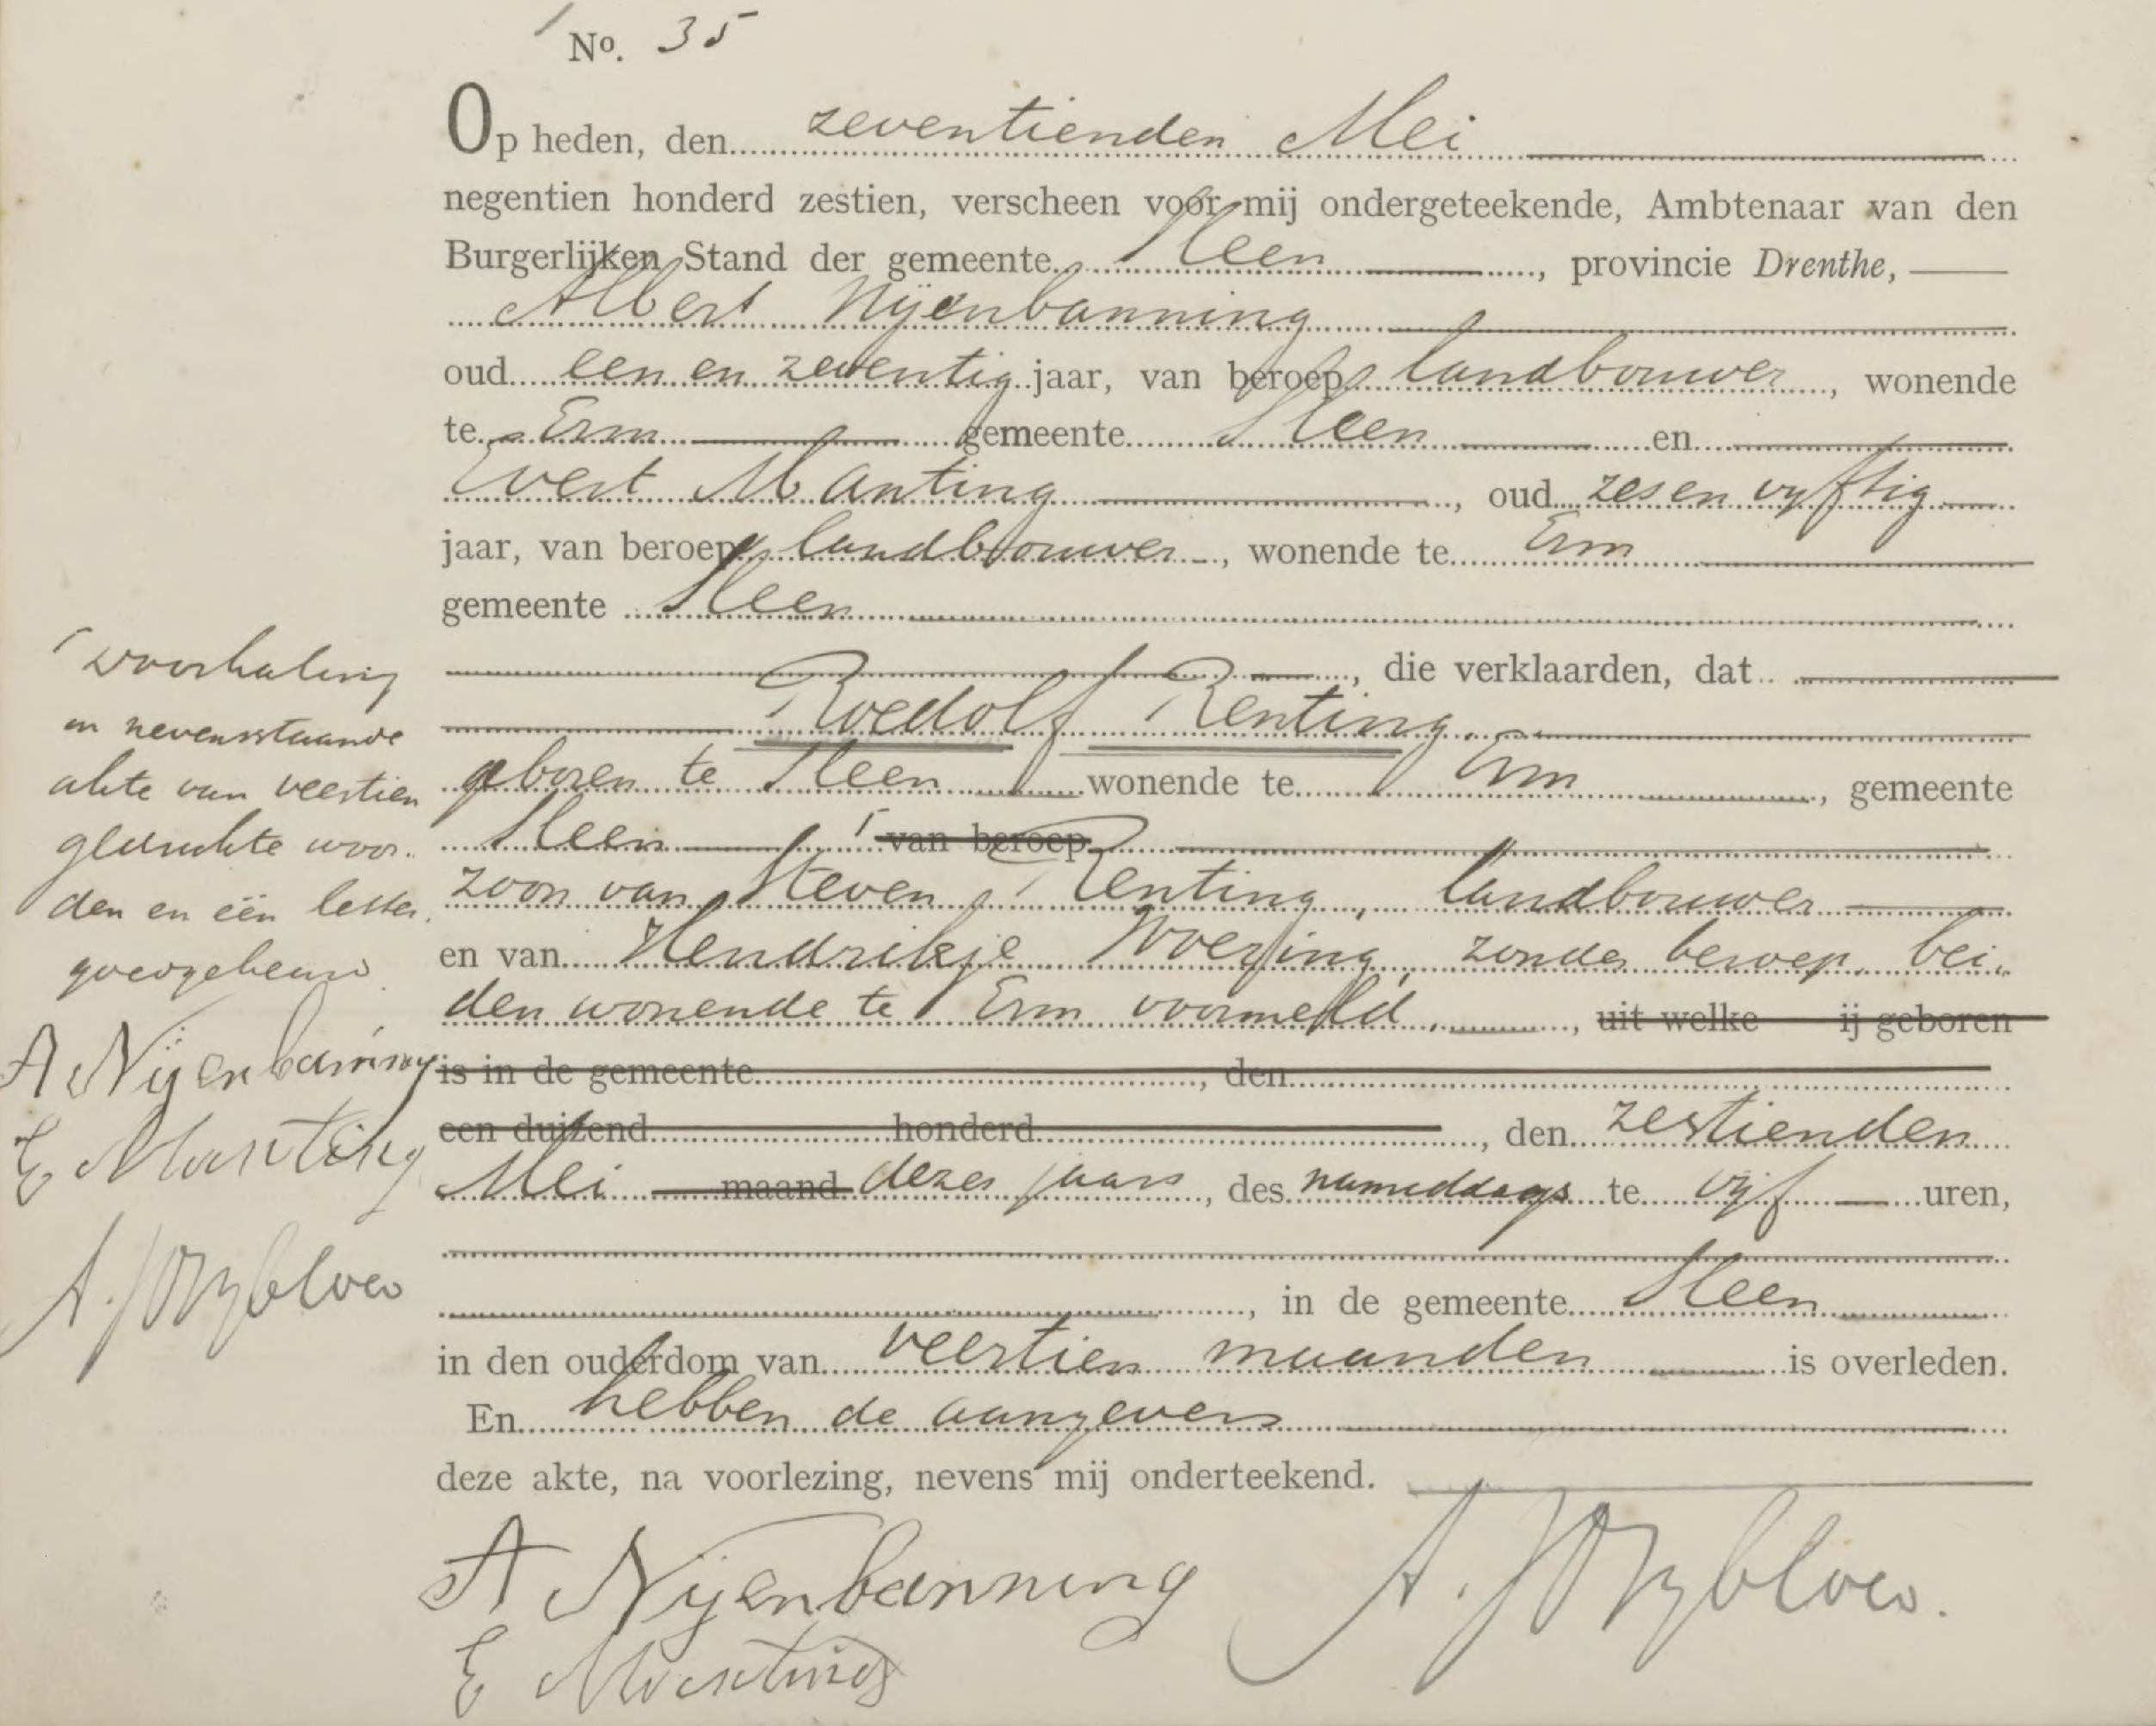 No. 35
Op heden, den zeventienden Mei
negentien honderd zestien, verscheen voor mij ondergeteekende, Ambtenaar van den
Burgerlijken Stand der gemeente Sleen, provincie Drenthe,
Albert Nijenbanning
oud een en zeventig jaar, van beroep landbouwer, wonende
te Erm gemeente Sleen en
Evert Manting, oud zes en vyftig
jaar, van beroep landbouwer, wonende te Erm
gemeente Sleen
, die verklaarden, dat
Roedolf Renting,
geboren te Sleen wonende te Erm, gemeente
Sleen van beroep
zoon van Steven Renting, landbouwer
en van Hendrikje, zonder beroep, bei-
den wonende te Erm voormeld, uit welke ij geboren
is in de gemeente, den
een duizend honderd, den zestienden
Mei maand dezes jaars, des namiddags te vijf uren,
, in de gemeente Sleen
in den ouderdom van veertien maanden is overleden.
En hebben de aangevers
deze akte, na voorlezing, nevens mij onderteekend.
A Nijenbanning
E Manting
doorhaling
in nevensstaande
akte van veertien
gedrukte woor-
den en één letter
goedgekeurd
A Nijenbanning
E Manting